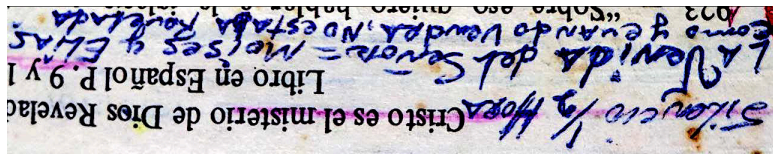 Silencio 1/2 Hora Cristo es el misterio de Dios Revelad
Libro en Español P. 9 y 1
La Venida del Señor = Moises y Elias
Como y cuando vendra, no estaba Revelada
"Sobre eso quiero hablar